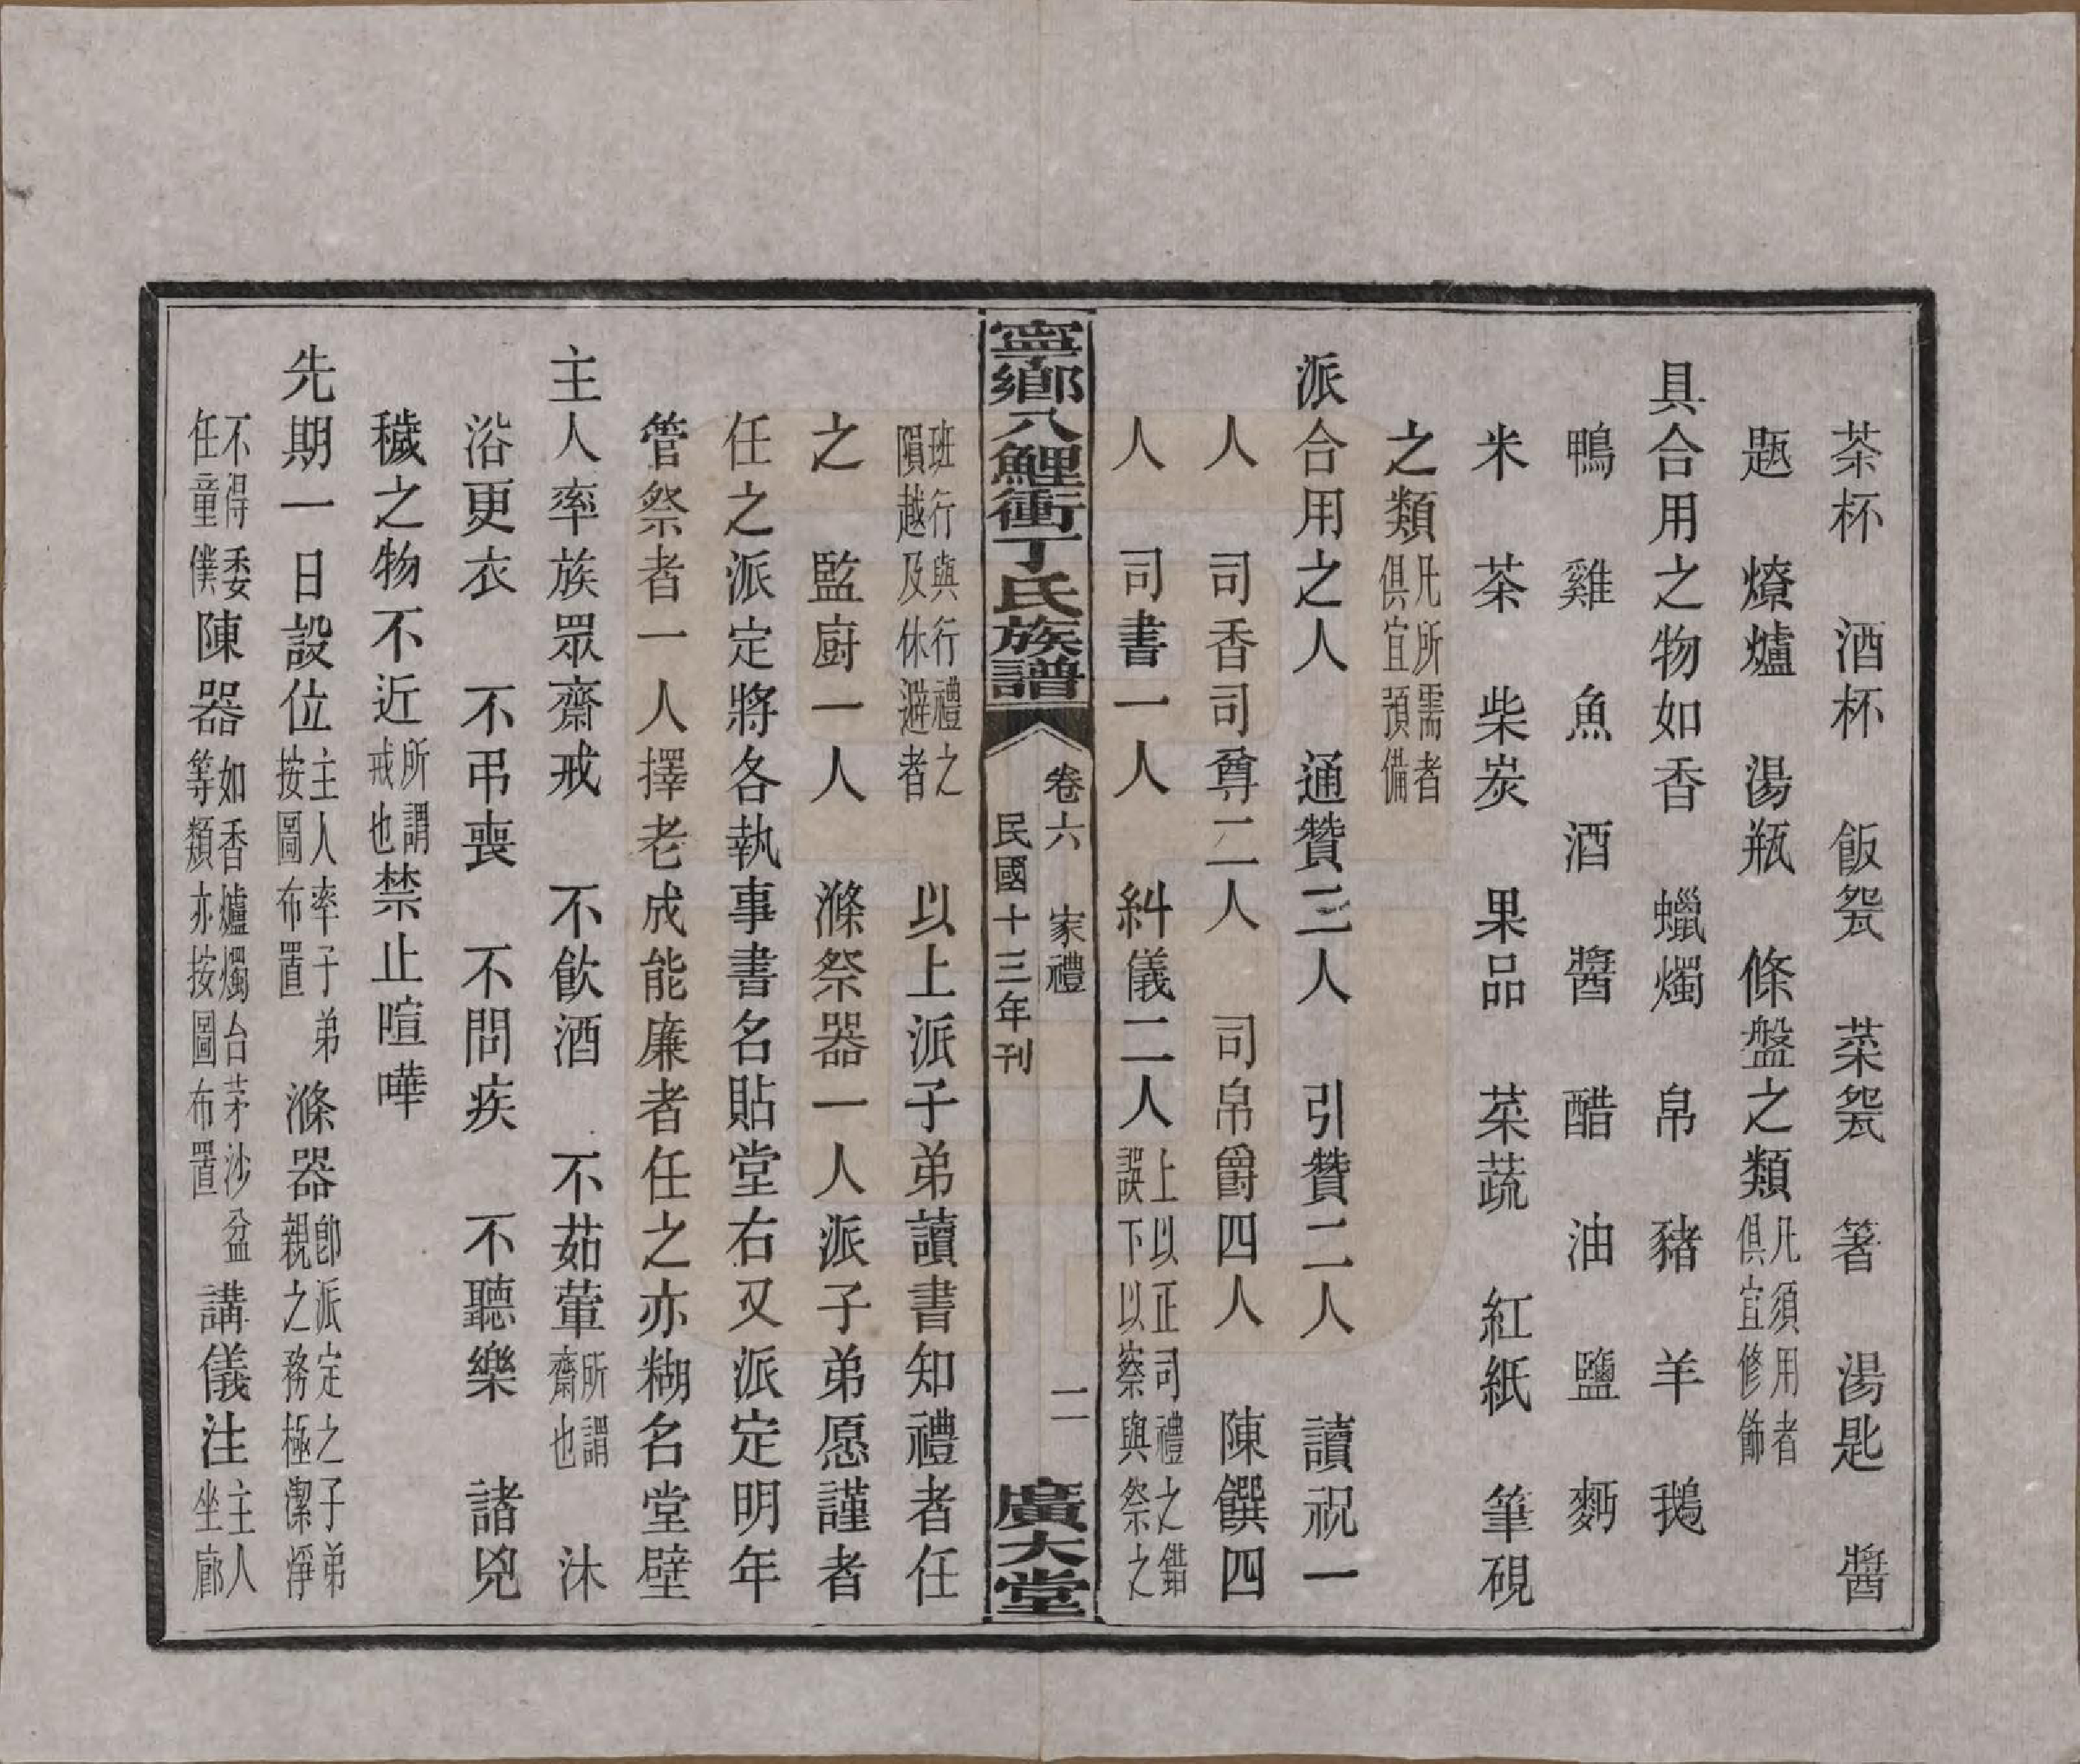 茶杯　酒杯　飯盌　菜盌　箸　湯匙　醬
㼵　燎爐　湯瓶　條盤之類凡須用者俱宜修飾
具合用之物如香　蠟燭　帛　豬　羊　鵝
鴨　雞　魚　酒　醬　醋　油　鹽　麪
米　茶　柴炭　果品　菜蔬　紅紙　筆硯
之類凡所需者俱宜預備
派合用之人　通贊三人　引贊二人　讀祝一
人　司香司尊二人　司帛爵四人　陳饌四
人　司書一人　糾儀二人上以正司禮之錯誤下以察與祭之
寧鄉八鯉衝丁氏族譜　卷六　家禮　民國十三年刊　二　廣大堂
班行與行禮之隕越及休避者　以上派子弟讀書知禮者任
之　監廚一人　滌祭器一人派子弟愿謹者
任之派定將各執事書名貼堂右又派定明年
管祭者一人擇老成能廉者任之亦糊名堂壁
主人率族眾齋戒　不飲酒　不茹葷所謂齋也　沐
浴更衣　不弔喪　不問疾　不聽樂　諸兇
穢之物不近所謂戒也禁止喧嘩
先期一日設位主人率子弟按圖布置　滌器卽派定之子弟親之務極潔淨
不得委任童僕陳器如香爐燭台茅沙盆等類亦按圖布置　講儀注主人坐廊